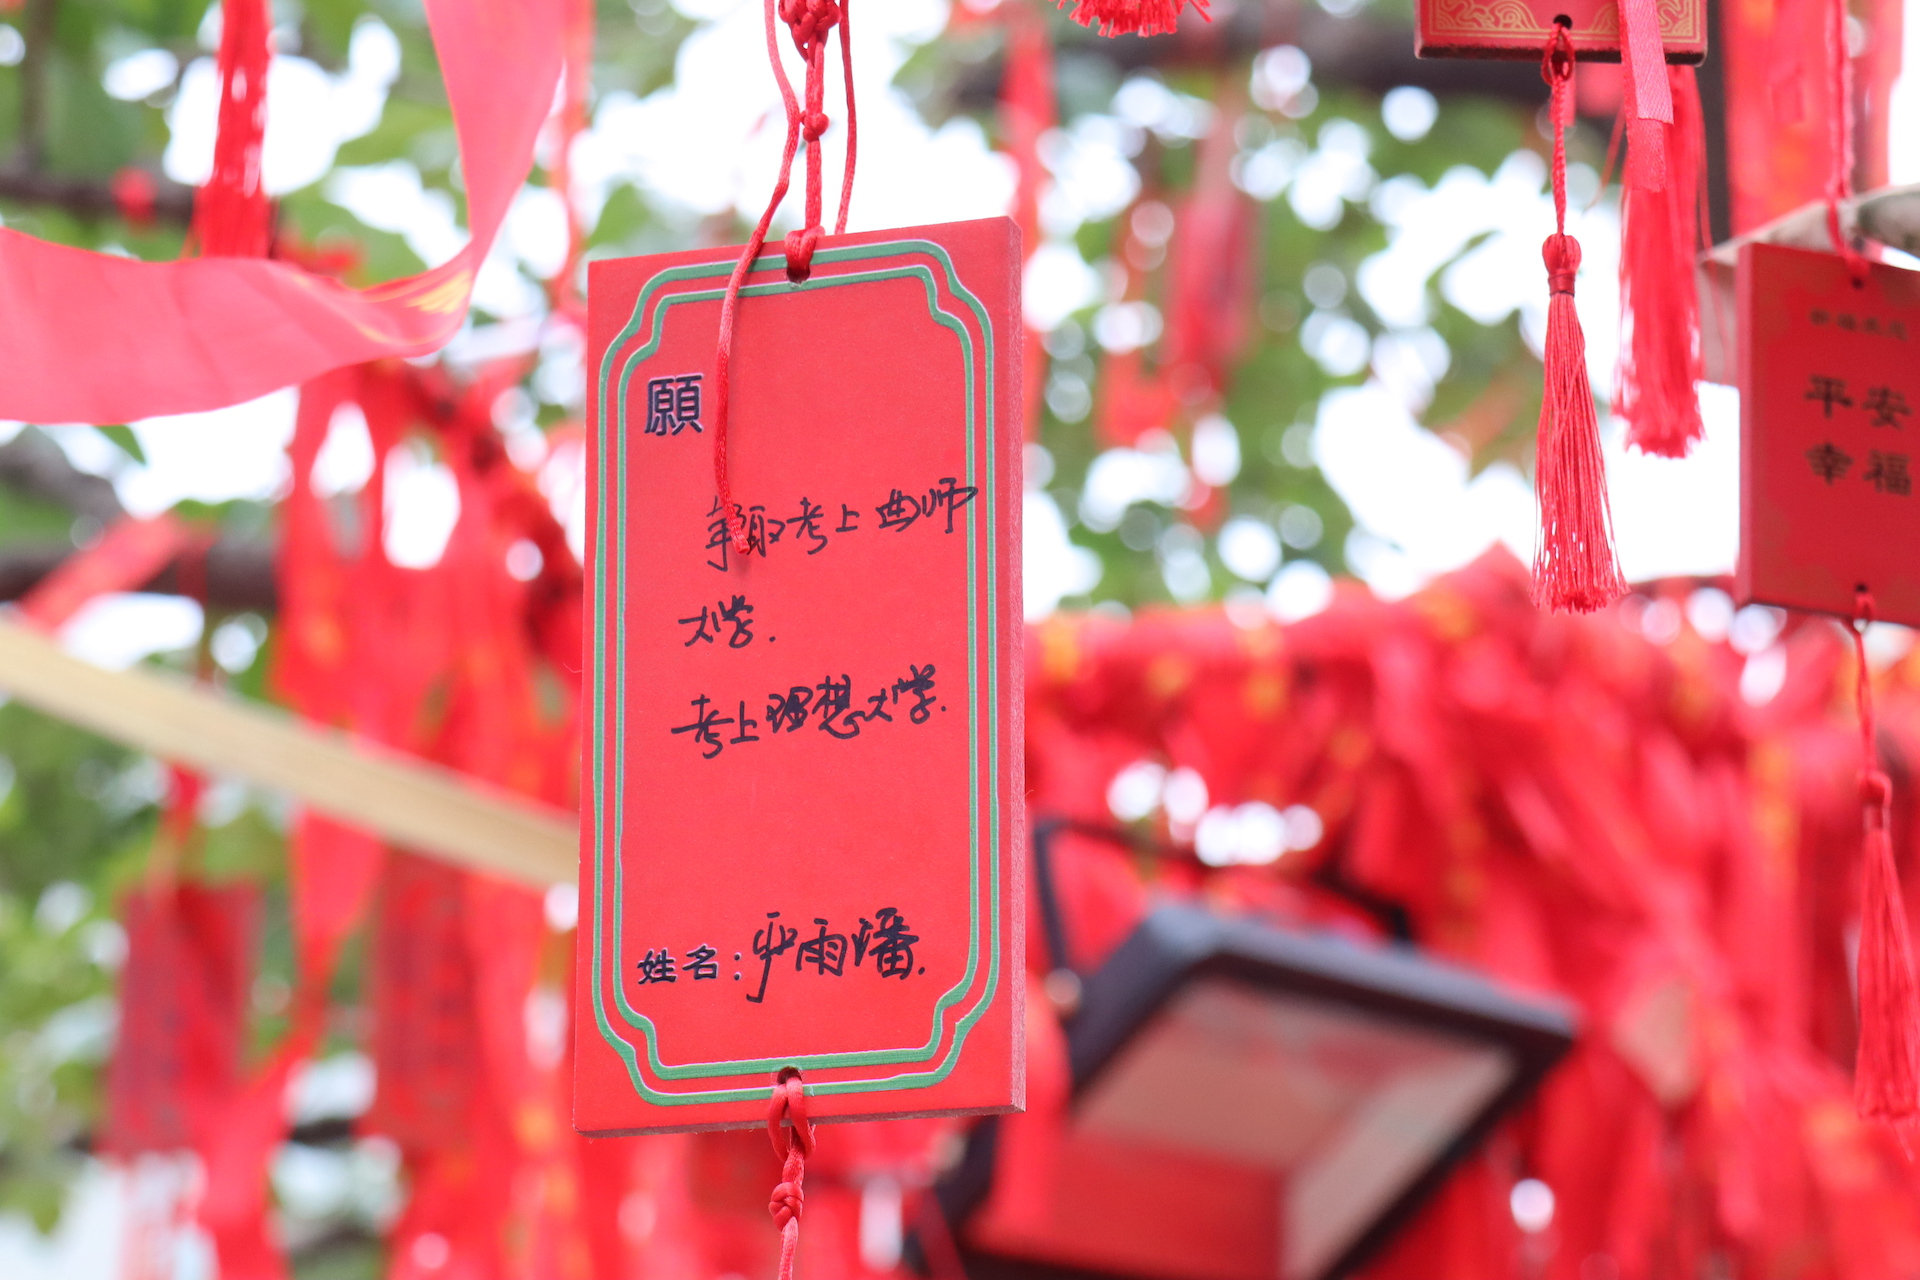 願
争取考上曲师
大学.
考上理想大学.
姓名:尹雨潘.
平安
幸福